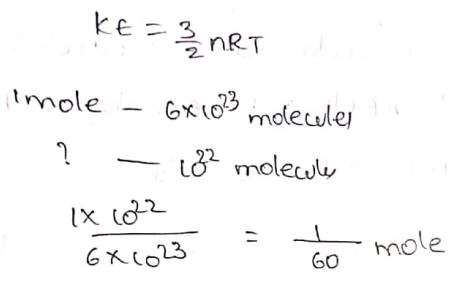 KE = 3/2 nRT
1mole – 6×10²³ molecules
? — 10²² molecules
1×10²²/6×10²³ = 1/60 mole